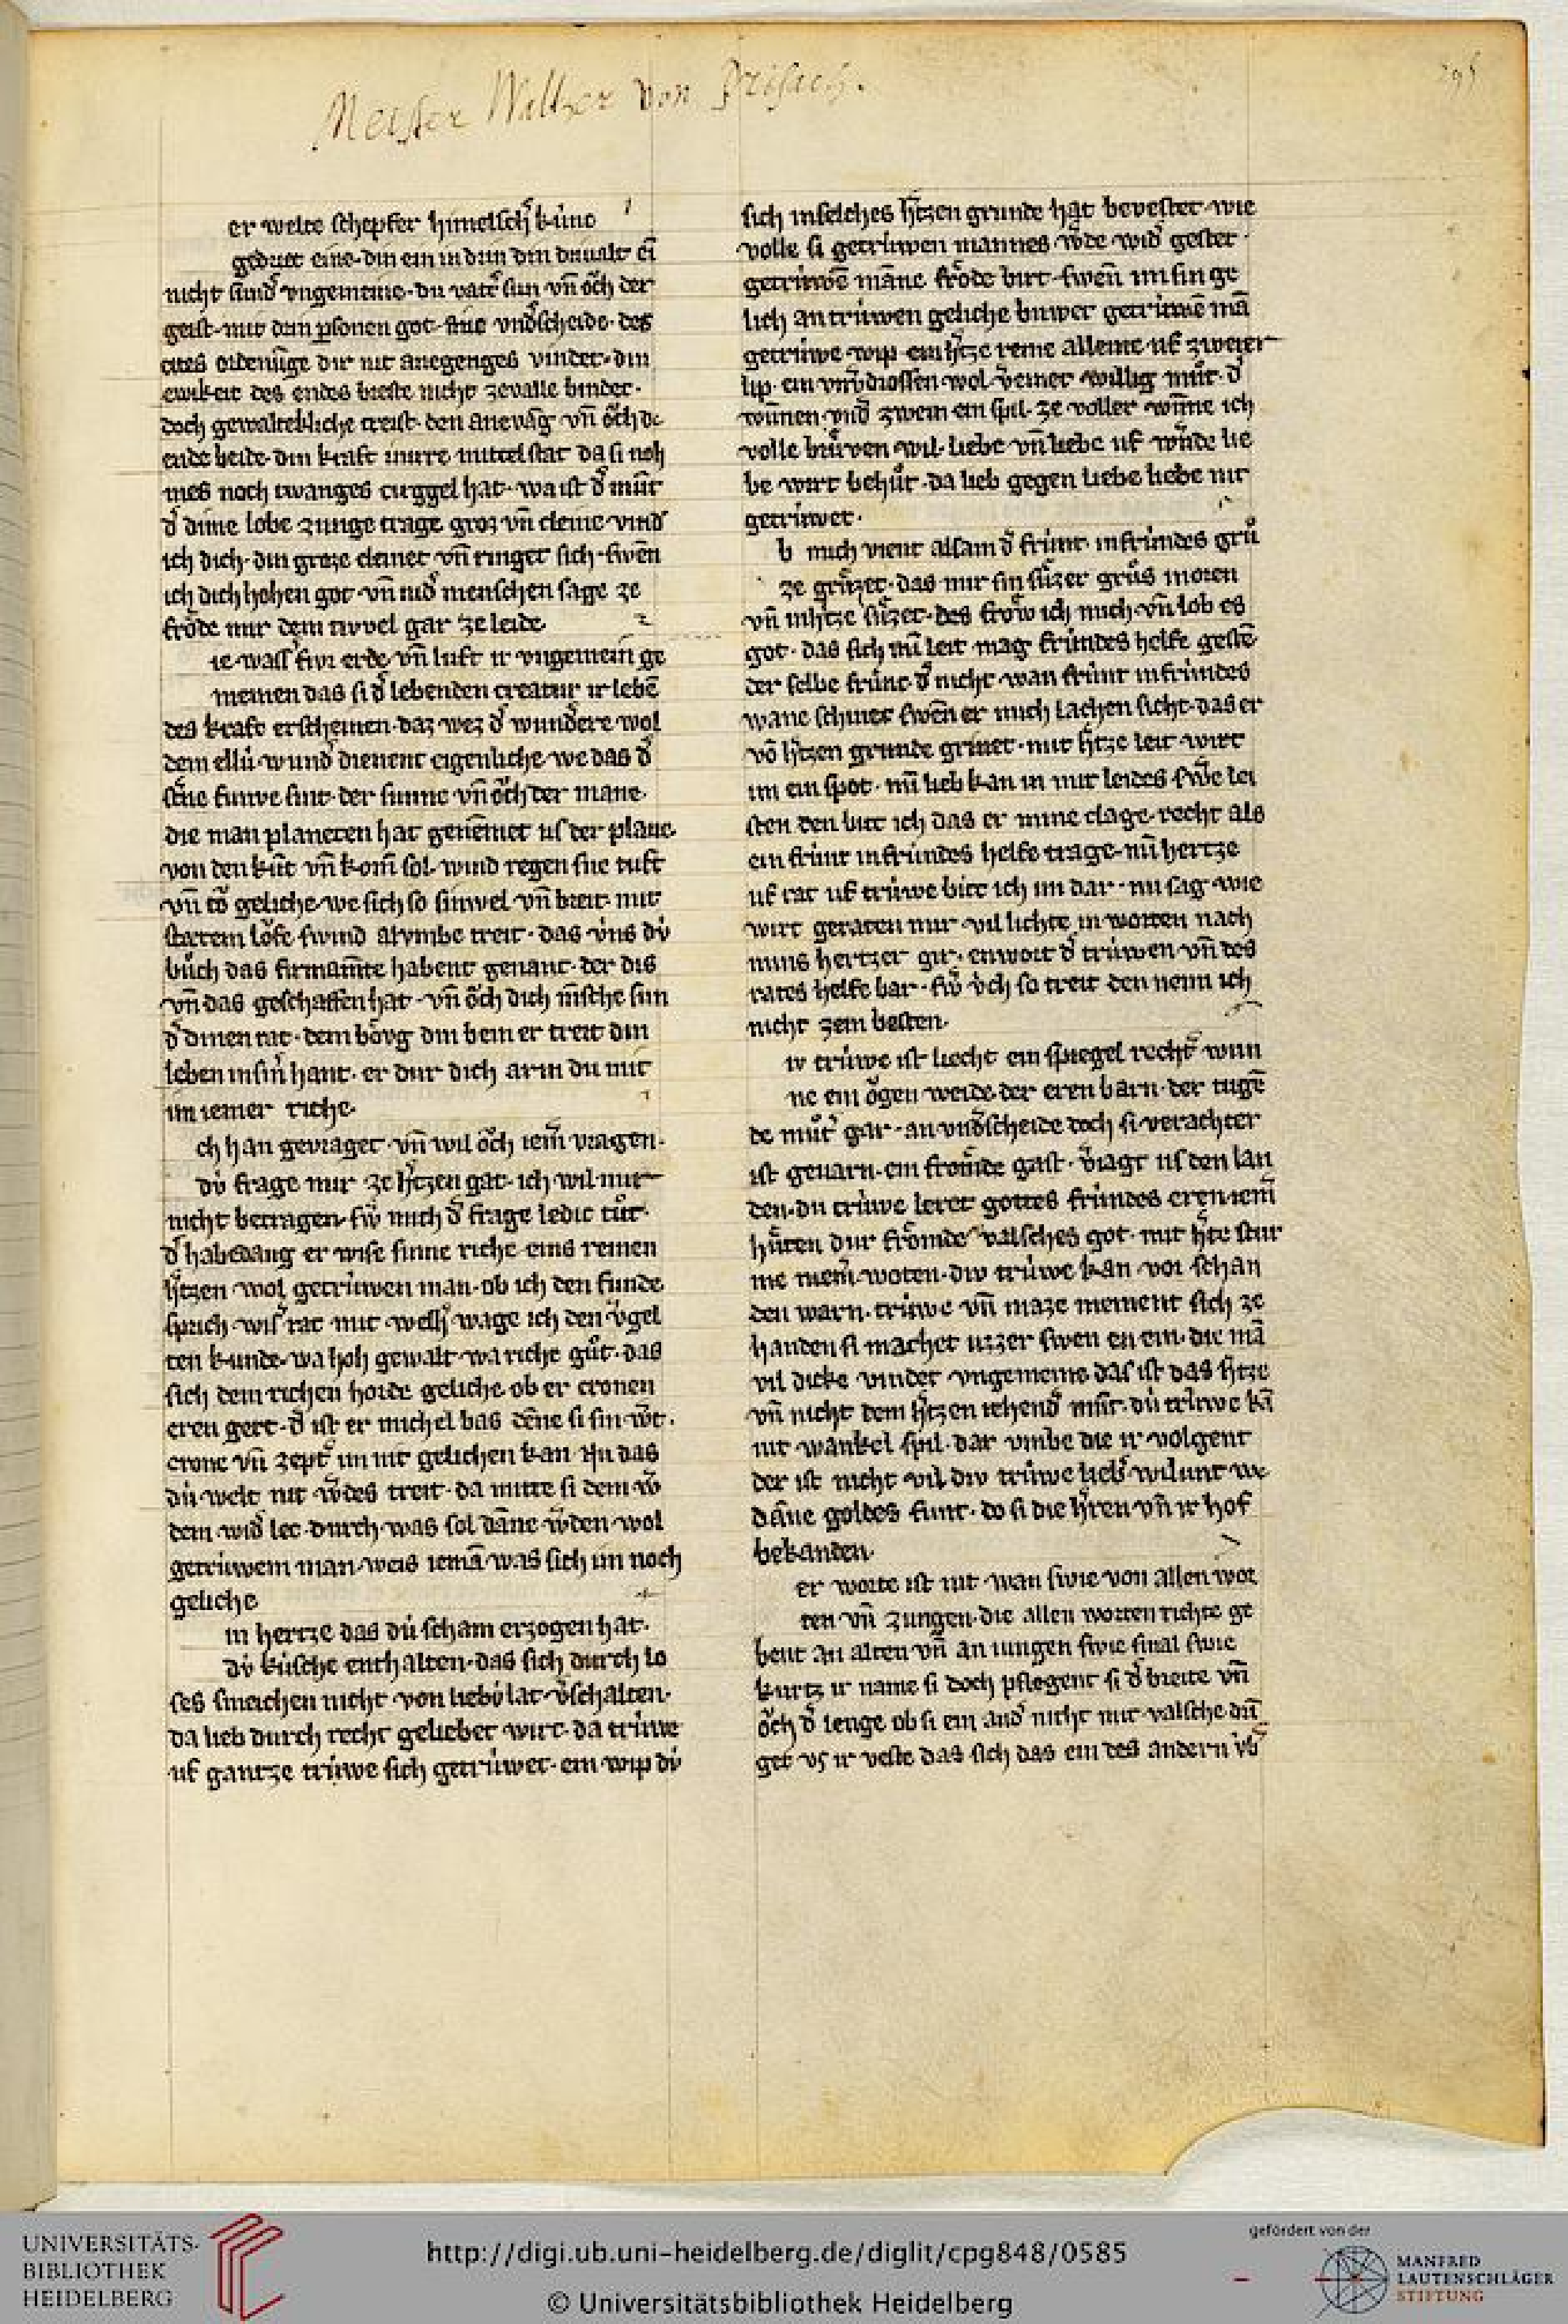 Meister Walther von Prisach.
295
er welte schepfer himelsch' kúnc
gedriet eine· din ein in drin din driualt ei
nicht sund' vngemeine· du vater sun vn̄ o̊ch der
geist· mit drin p̱sonen got· ane vnd'scheide· des
cites ordenūge dir nit anegenges vindet· din
ewikeit des endes breste nicht zevalle bindet·
doch gewalteklliche treist· den anevāg vn̄ o̊ch de
ende beide· din kraft mitte mittel stat da si noh
mes noch twanges ciggel hat· wa ist d' mūt
d' dime lobe zunge trage groz vn̄ cleine vind
ich dich· din groze cleinet vn̄ ringet sich· swēn
ich dich hohen got vn̄ nid' menschen sage ze
frőde mir dem tivvel gar ze leide·
ie wass' fivr erde vn̄ luft ir vngemein ge
meinen das si d' lebenden creatur ir lebē
des kraft erscheinen· daz wez d' wundere wol
dem ellú wund' dienent eigenliche· we das d'
sūne sunve sint· der sunne vn̄ o̊ch der mane·
die man planeten hat genēmet us der plane·
von den kūt vn̄ kom̄ sol· wind regen sne tuft
vn̄ to̊ geliche· we sich so sinwel vn̄ breit· mit
stetem lo̊fe swind alvmbe treit· das v́ns dv́
bůch das firmam̄te habent genant· der dis
vn̄ das geschaffen hat· vn̄ o̊ch dich m̄sche sun
d' dinen rat· dem bo̊vg din bein er treit din
leben in sin' hant· er dur dich arm du mit
im iemer riche·
ch han gevraget· vn̄ wil o̊ch iem̄ vragen·
dv́ frage mir ze h'tzen gat· ich wil mir
nicht betragen· sw' mich d' frage ledic tůt·
d' hab dang er wise sinne riche· eins reinen
h'tzen wol getrúwen man· ob ich den funde
sprich wis' rat mit welh' wage ich den v'gel
ten kunde· wa hoh gewalt· wa riche gůt· das
sich dem richen horde geliche· ob er cronen
eren gert· d' ist er michel bas dēne si sin w't·
crone vn̄ zept' im nit gelichen kan· An das
dú welt nit w'des treit· da mitte si dem w'
dem wid' lec· durch was sol dāne w'den wol
getrúwem man· weis iemā was sich im noch
geliche
in hertze das dú scham erzogen hat·
dv́ kúsche enthalten· das sich durch lo
ses smeichen nicht· von liebv́ lat· v'schalten·
da lieb durch recht geliebet wirt· da trúwe
uf gantze trúwe sich getrúwet· ein wip dv́
sich in selches h'tzen grunde hat bevestet· wie
volle si getrúwen mannes w'de wid' gestet·
getrúwē māne frőde birt· swēn im sin ge
lich an trúwen geliche buwet getrúwē mā
getrúwe wip ein h'tze reine alleine· uf zweier
lip· ein vnv'drossen wol v'einet willig můt· d'
wūnen· vnd' zwein ein spil· ze voller wūne ich
volle brůven wil· liebe vn̄ liebe uf w'nde lie
be wirt behůt· da lieb gegen liebe liebe mit
getrúwet·
b mich vient alsam d' frúnt· in frúndes grů
ze grůzet· das mir sin sůzer grůs moren
vn̄ in h'tze sůzet· des frőw ich mich vn̄ lob es
got· das sich mī leit mag frúndes helfe gestē·
der selbe frúnt· d' nicht· wan frúnt in frúndes
wane schinet swēn er mich lachen sicht· das er
vō h'tzen grunde grinet· mit h'tze leit wirt
im ein spot· mī lieb kan in mir leides sw'e lei
sten den bitt ich das er mine clage· recht als
ein frúnt in frúndes helfe trage· mī hertze
uf rat uf trúwe bitt ich im dar· nu sag wie
wirt geraten mir· vil lichte in worten nach
mins hertzer gir· enwort d' trúwen vn̄ des
rates helfe bar· sw' v́ch so treit den nenn ich
nicht zem besten·
iv trúwe ist liecht ein spiegel recht' wun
ne ein o̊gen weide· der eren barn· der tugē
de můt' gar· an vnd'scheide doch si verachter
ist gevarn· ein fromde gast· v'iagt us den lan
den· du trúwe leret gottes frúndes eren iem̄
hůten dur frőmde valsches got· mit h'te stur
me niem̄ woten· div trúwe kan vor schan
den warn· trúwe vn̄ maze nement sich ze
handen si machet uzzer swen en ein· die mā
vil dicke vindet vngemeine das ist das h'tze
vn̄ nicht dem h'tzen iehend' můt· dú trúwe kā
nit wankel spil· dar vmbe die ir volgent
der ist nicht vil div trúwe lieb' wilunt we
dāne goldes funt· do si die h'ren vn̄ ir hof
bekanden·
er worte ist nit wan swie von allen wor
ten vn̄ zungen· die allen worten richte ge
bent an alten vn̄ an iungen swie smal swie
kurtz ir name si doch pflegent si d' breite vn̄
o̊ch d' lenge ob si ein and' nicht mit valsche drī
get vs ir veste das sich das ein des andern v́b'
UNIVERSITÄTS-
BIBLIOTHEK
HEIDELBERG
http://digi.ub.uni-heidelberg.de/diglit/cpg848/0585
© Universitätsbibliothek Heidelberg
gefördert von der
MANFRED
LAUTENSCHLÄGER
STIFTUNG